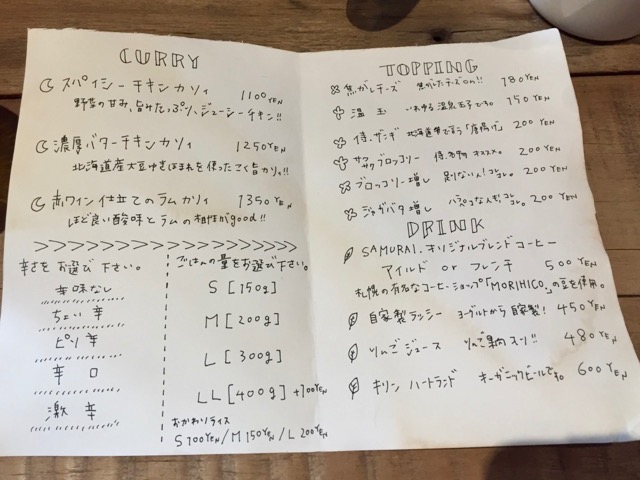 CURRY
スパイシーチキンカリィ 1100YEN
野菜の甘み、旨みたっぷり、ジューシーチキン!!
濃厚バターチキンカリィ 1250YEN
北海道産大豆ゆきほまれを使ったこく旨カリィ!!
赤ワイン仕立てのラムカリィ 1350YEN
ほど良い酸味とラムの相性がgood!!
辛さをお選び下さい。
辛味なし
ちょい辛
ピリ辛
辛口
激辛
ごはんの量をお選び下さい。
S [150g]
M [200g]
L [300g]
LL [400g] +100YEN
おかわりライス
S 100YEN/M 150YEN/L 200YEN
TOPPING
焦がしチーズ 焦がしたチーズon!! 180YEN
温玉 いわゆる温泉玉子です。 150YEN
侍.ザンギ 北海道弁で言う「唐揚げ」 200YEN
サクサクブロッコリー 侍.名物 オススメ。 200YEN
ブロッコリー増し 足りない人!コレコレ。 200YEN
ジャガバタ増し 200YEN
DRINK
SAMURAI.オリジナルブレンドコーヒー
マイルド or フレンチ 500YEN
札幌の有名なコーヒーショップ「MORIHICO.」の豆を使用。
自家製ラッシー ヨーグルトから自家製! 450YEN
りんごジュース りんご果肉入り!! 480YEN
キリン ハートランド オーガニックビールです。 600YEN